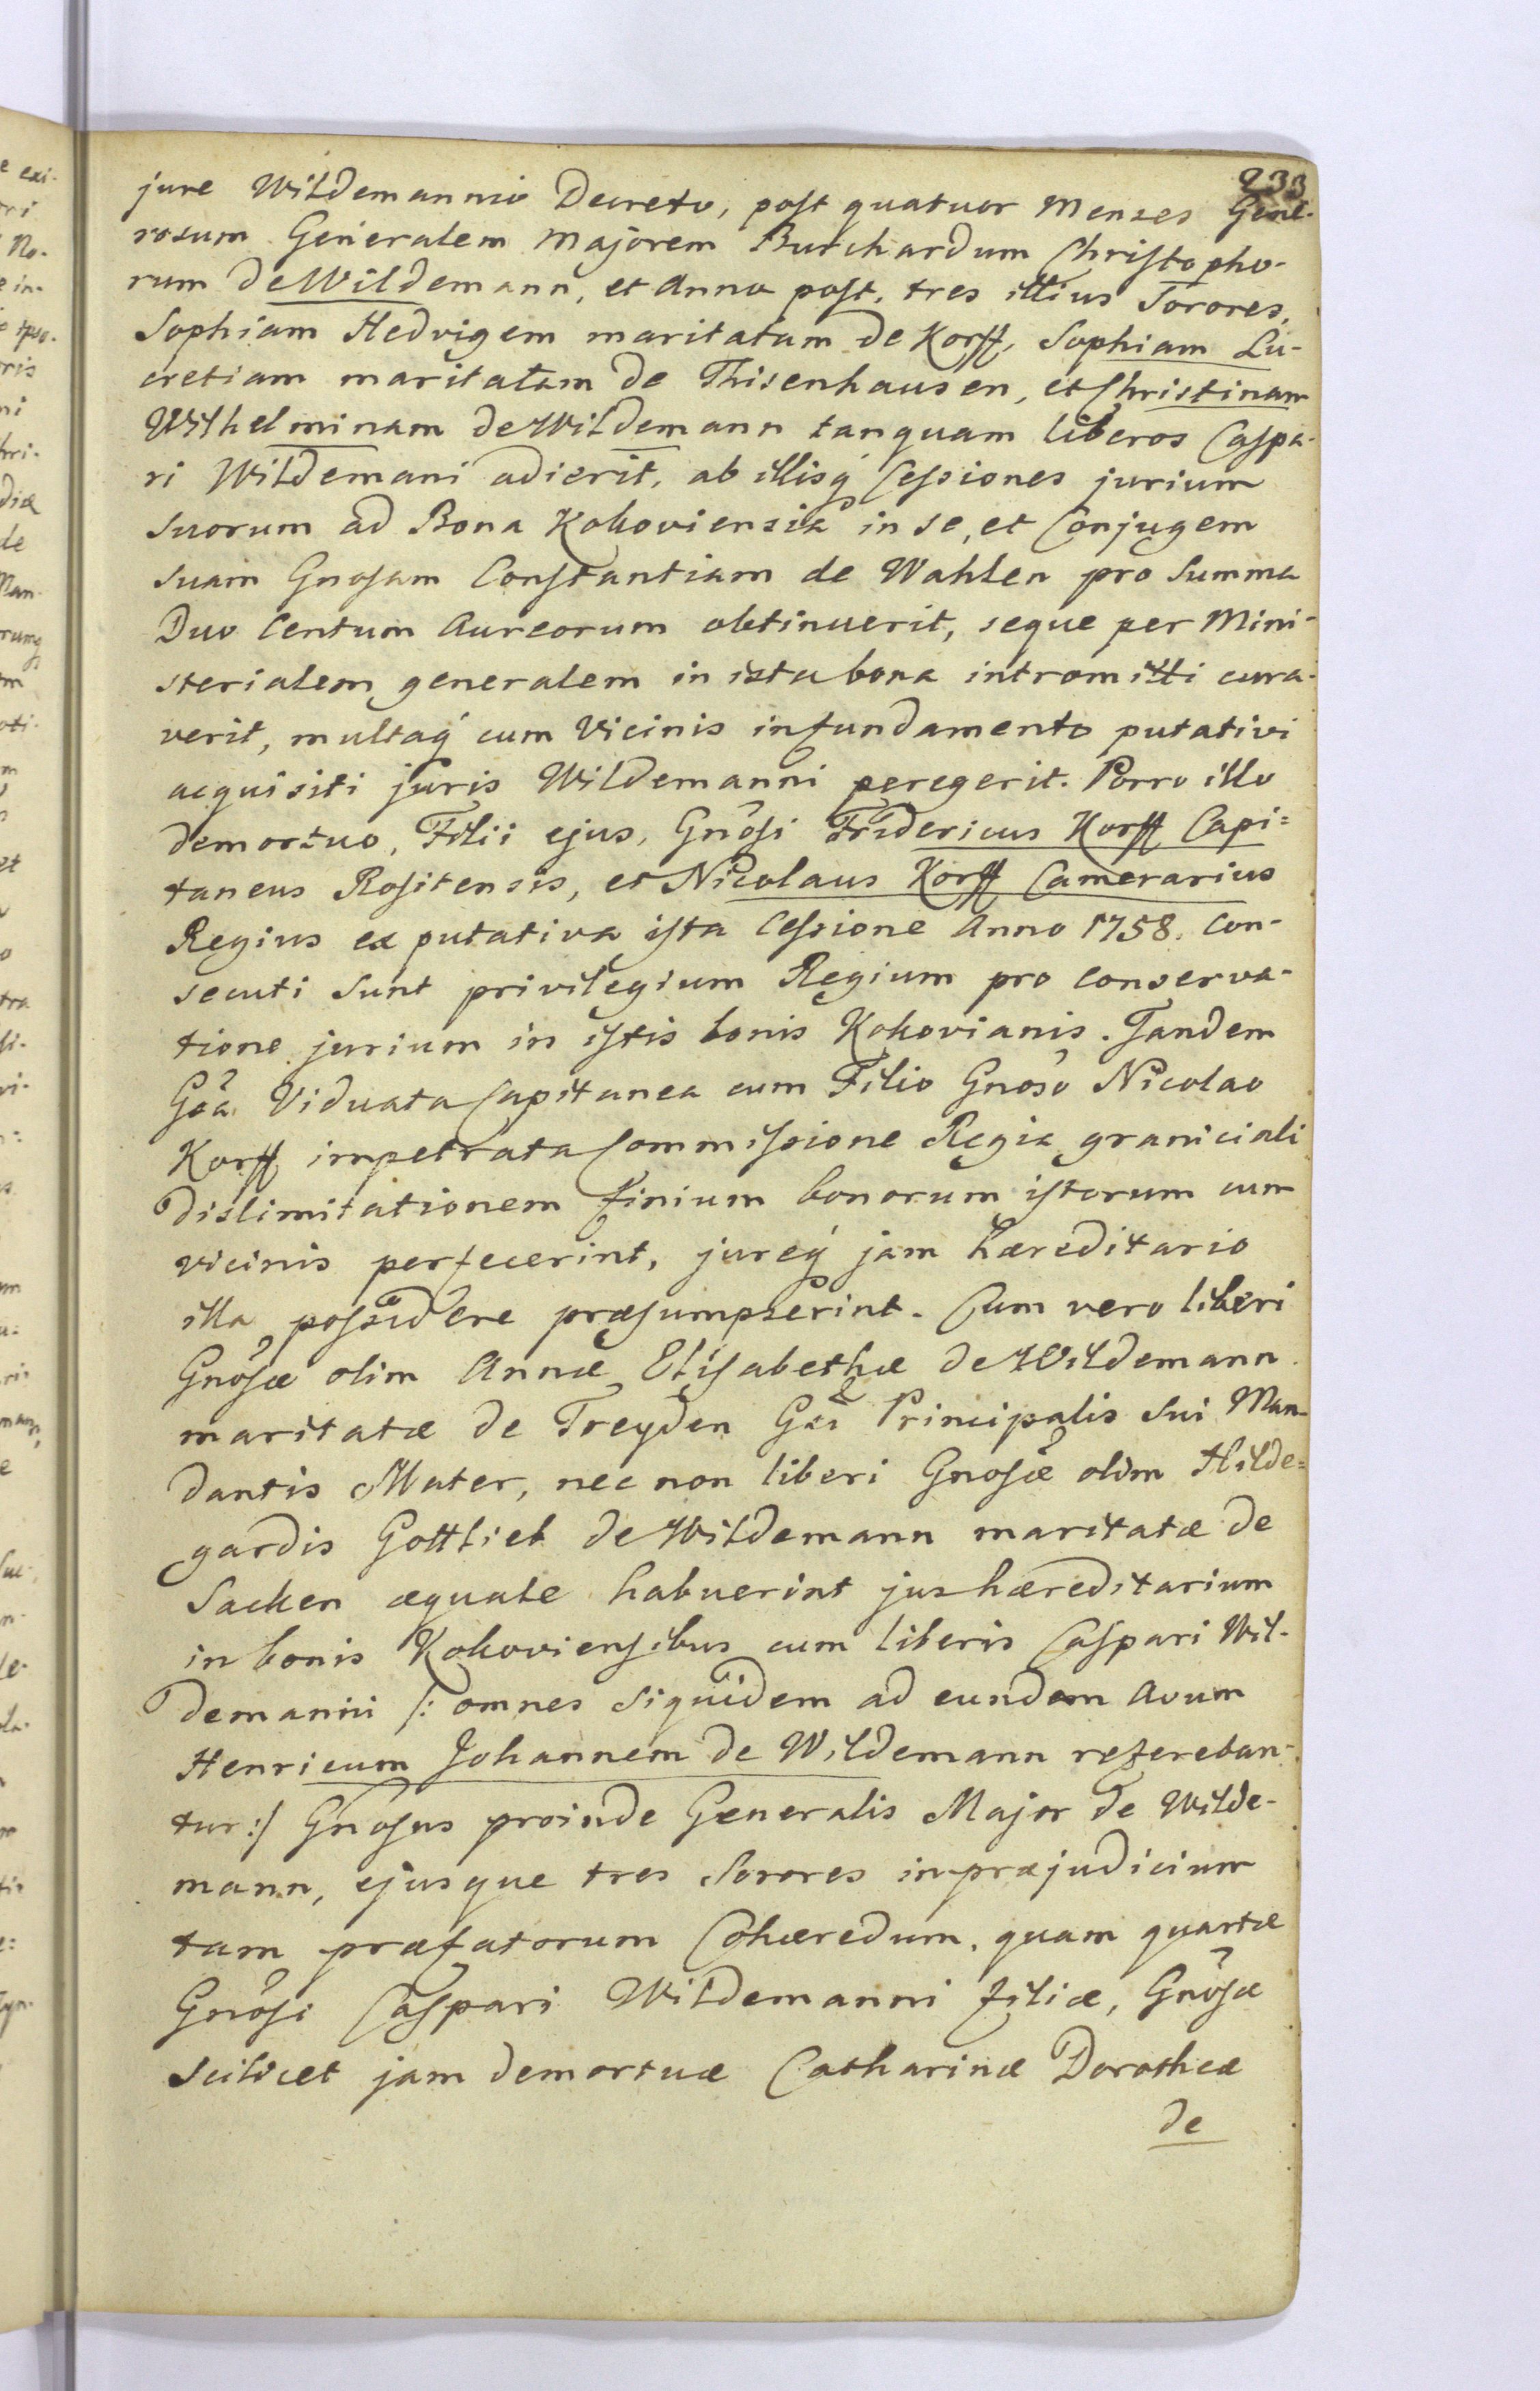 233
jure Wildemannio Decreto, post quatuor Menses Gene-
rosum Generalem Majorem Burchardum Christopho-
rum de Wildemann, et Anno post, tres illius Sorores,
Sophiam Hedvigem maritatam de Korff, Sophiam Lu-
cretiam maritatam de Thisenhausen, et Christinam
Wilhelminam de Wildemann tanquam liberos Caspa-
ri Wildemani adierit, ab illisq́ Cessiones jurium
suorum ad Bona Kokoviensia in se, et Conjugem
suam Gnosam Constantiam de Wahlen pro Summa
Duo Centum Aureorum obtinuerit, seque per Mini-
sterialem generalem in ista bona intromitti cura-
verit, multaq́ cum Vicinis in fundamento putativi
acquisiti juris Wildemanni peregerit. Porro illo
demortuo, Filii ejus, Gnõsi Fridericus Korff Capi=
taneus Rositensis, et Nicolaus Korff Camerarius
Regius ex putativa ista Cessione Anno 1758. con-
secuti sunt privilegium Regium pro conserva-
tione jurium in istis bonis Kokovianis. Tandem
Gsã Viduata Capitanea cum Filio Gnosõ Nicolao
Korff impetrata Commissione Regia graniciali
dislimitationem finium bonorum istorum cum
vicinis perfecerint, jureq́ jam hæreditario
illa possidere præsumpserint. Cum vero liberi
Gnõsæ olim Annæ Elisabethæ de Wildemann
maritatæ de Treyden Gsĩ Principalis sui Man-
dantis Mater, nec non liberi Gnosæ̃ olim Hilde=
gardis Gottlieb de Wildemann maritatæ de
Sacken æquale habuerint jus hæreditarium
in bonis Kokoviensibus cum liberis Caspari Wil-
demanni /: omnes siquidem ad eundem Avum
Henricum Johannem de Wildemann refereban-
tur :/ Gnosus proinde Generalis Major de Wilde-
mann, ejusque tres Sorores in præjudicium
tam præfatorum Cohæredum, quam quartæ
Gnõsi Caspari Wildemanni filiæ, Gnõsæ
scilicet jam demortuæ Catharinæ Dorotheæ
de